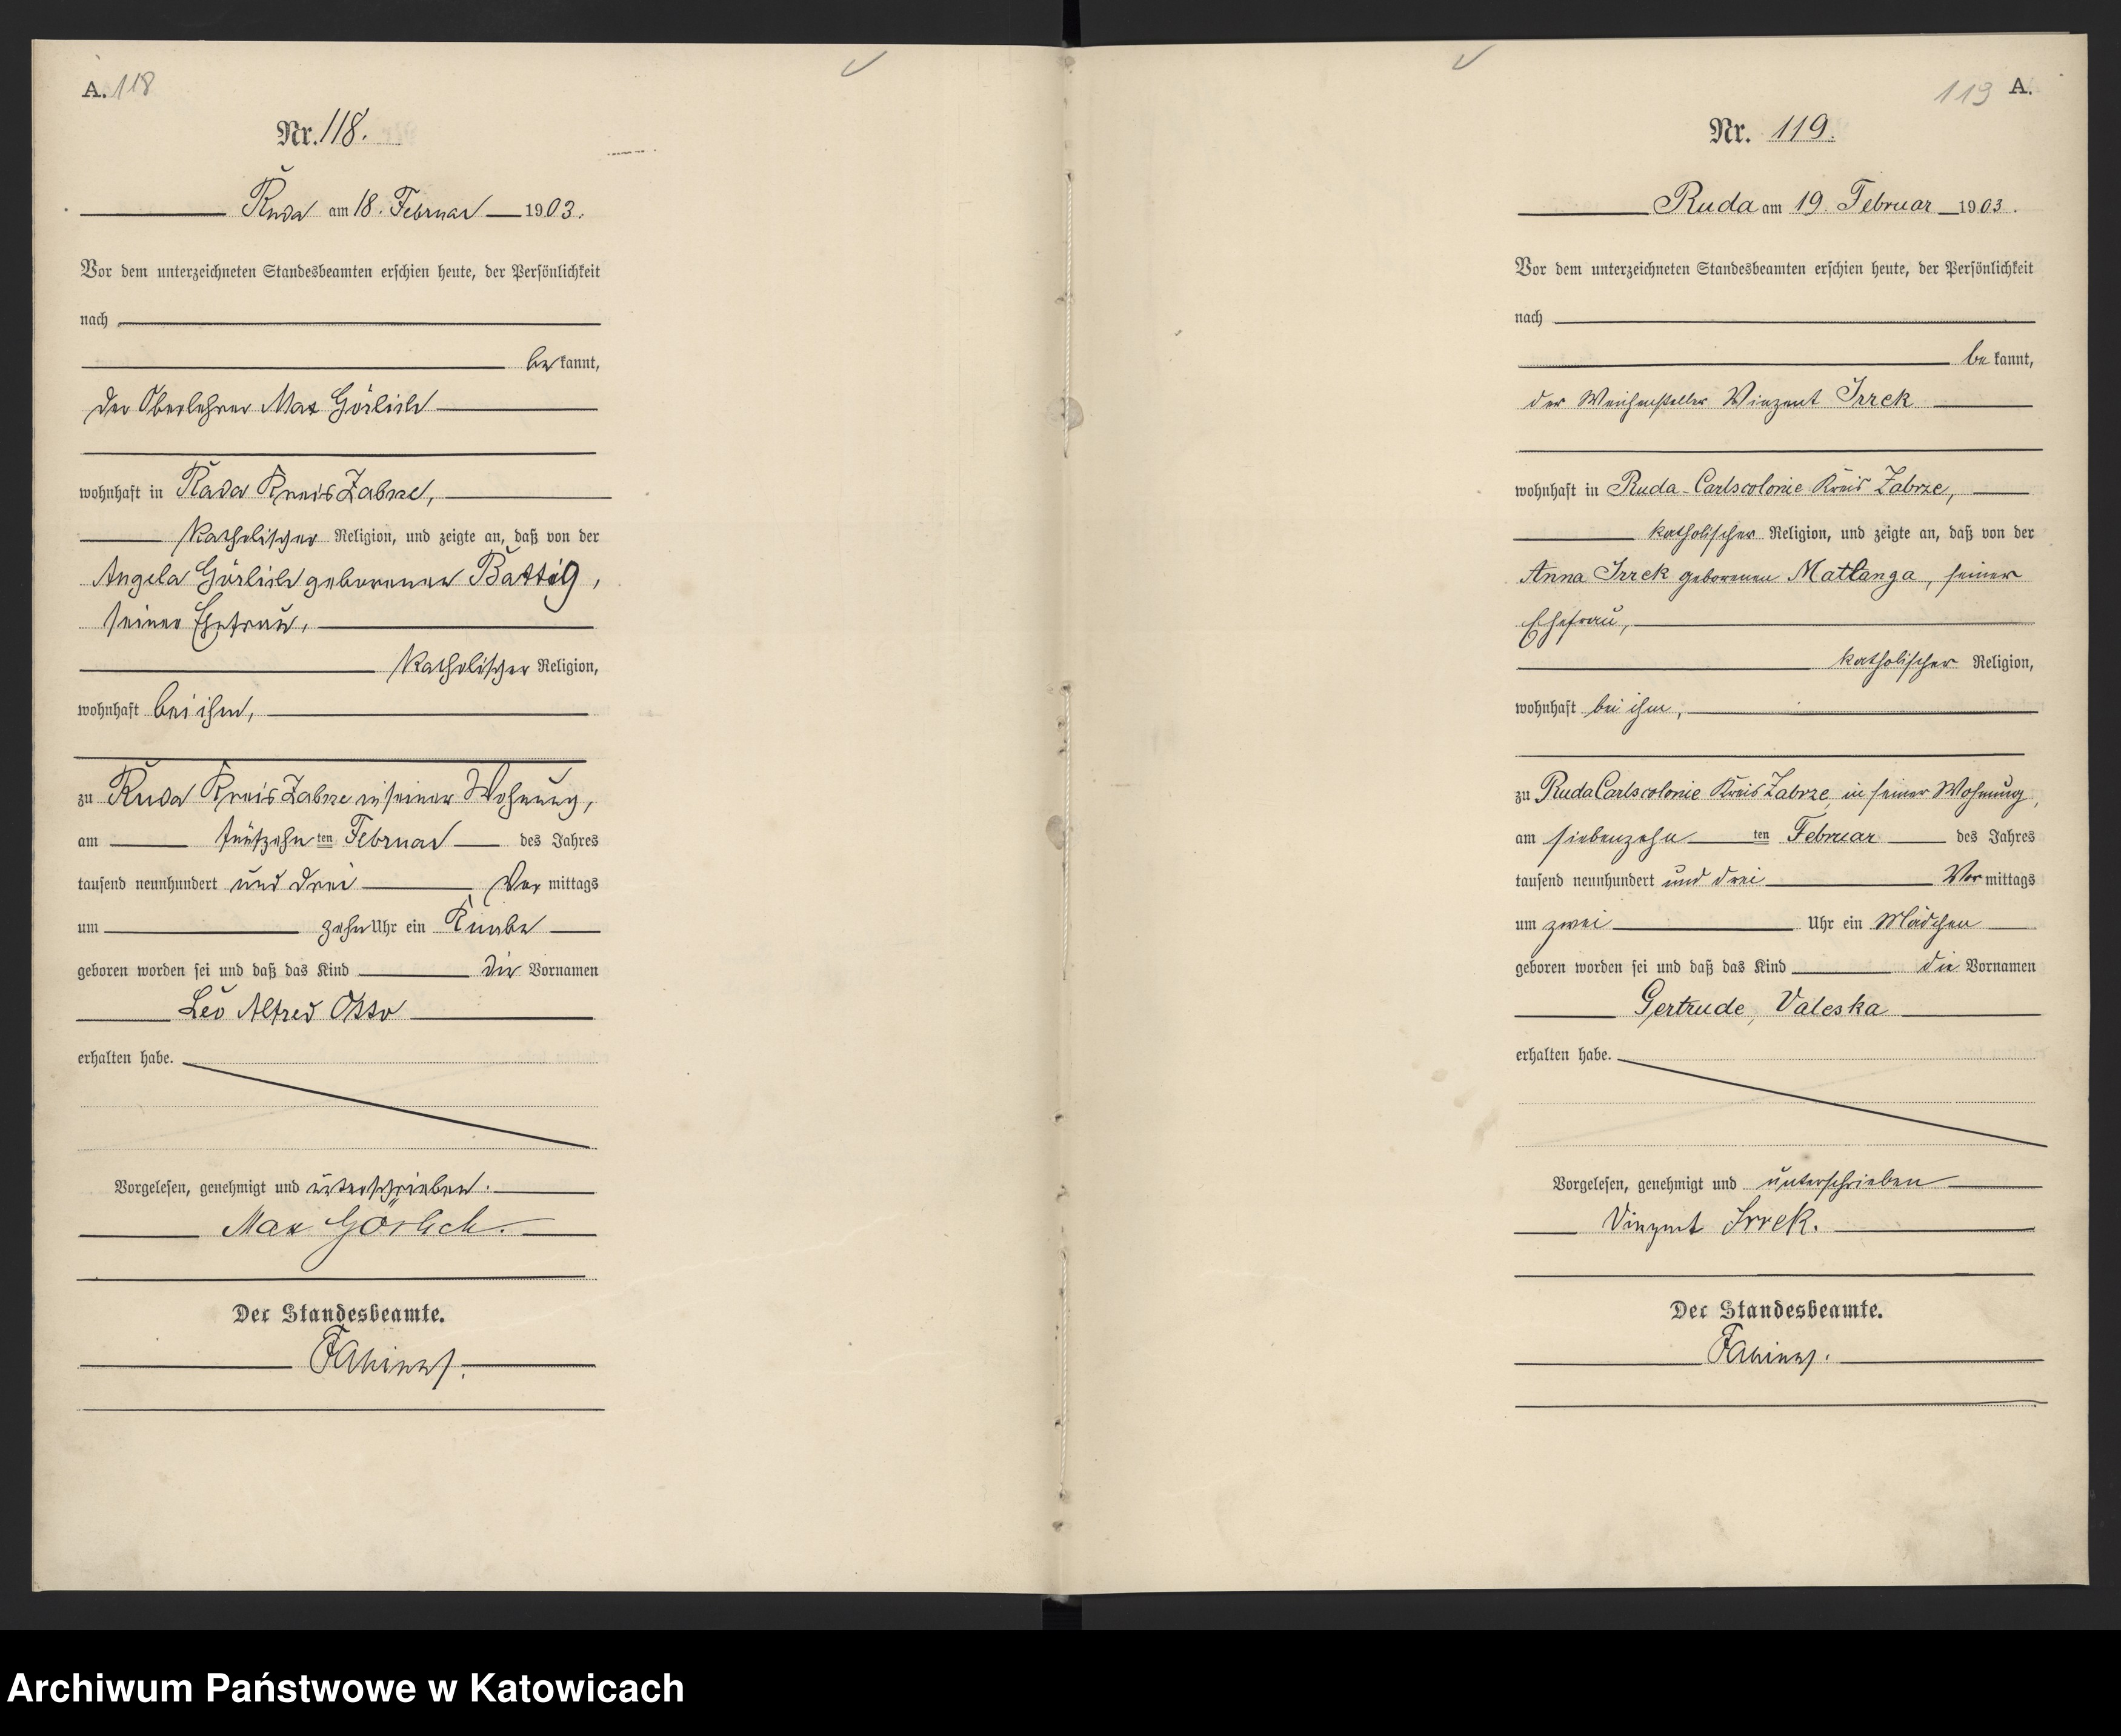 A. 118
Nr. 118.
Ruda am 18. Februar 1903.
Vor dem unterzeichneten Standesbeamten erschien heute, der Persönlichkeit
nach
bekannt,
der Oberlehrer Max Görlich
wohnhaft in Ruda Kreis Zabrze,
katholischer Religion, und zeigte an, daß von der
Angela Görlich geborenen Battig,
seiner Ehefrau,
katholischer Religion,
wohnhaft bei ihm,
zu Ruda Kreis Zabrze in seiner Wohnung,
am fünfzehnten Februar des Jahres
tausend neunhundert und drei Vormittags
um zehn Uhr ein Knabe
geboren worden sei und daß das Kind die Vornamen
Leo Alfred Otto
erhalten habe.
Vorgelesen, genehmigt und unterschrieben.
Max Görlich.
Der Standesbeamte.
119 A.
Nr. 119.
Ruda am 19. Februar 1903.
Vor dem unterzeichneten Standesbeamten erschien heute, der Persönlichkeit
nach
bekannt,
der Weichensteller Vinzent Irrek
wohnhaft in Ruda-Carlscolonie Kreis Zabrze,
katholischer Religion, und zeigte an, daß von der
Anna Irrek geborenen Matlanga, seiner
Ehefrau,
katholischer Religion,
wohnhaft bei ihm,
zu Ruda Carlscolonie Kreis Zabrze, in seiner Wohnung,
am siebenzehnten Februar des Jahres
tausend neunhundert und drei Vormittags
um zwei Uhr ein Mädchen
geboren worden sei und daß das Kind die Vornamen
Gertrude, Valeska
erhalten habe.
Vorgelesen, genehmigt und unterschrieben
Vinzent Irrek.
Der Standesbeamte.
Archiwum Państwowe w Katowicach